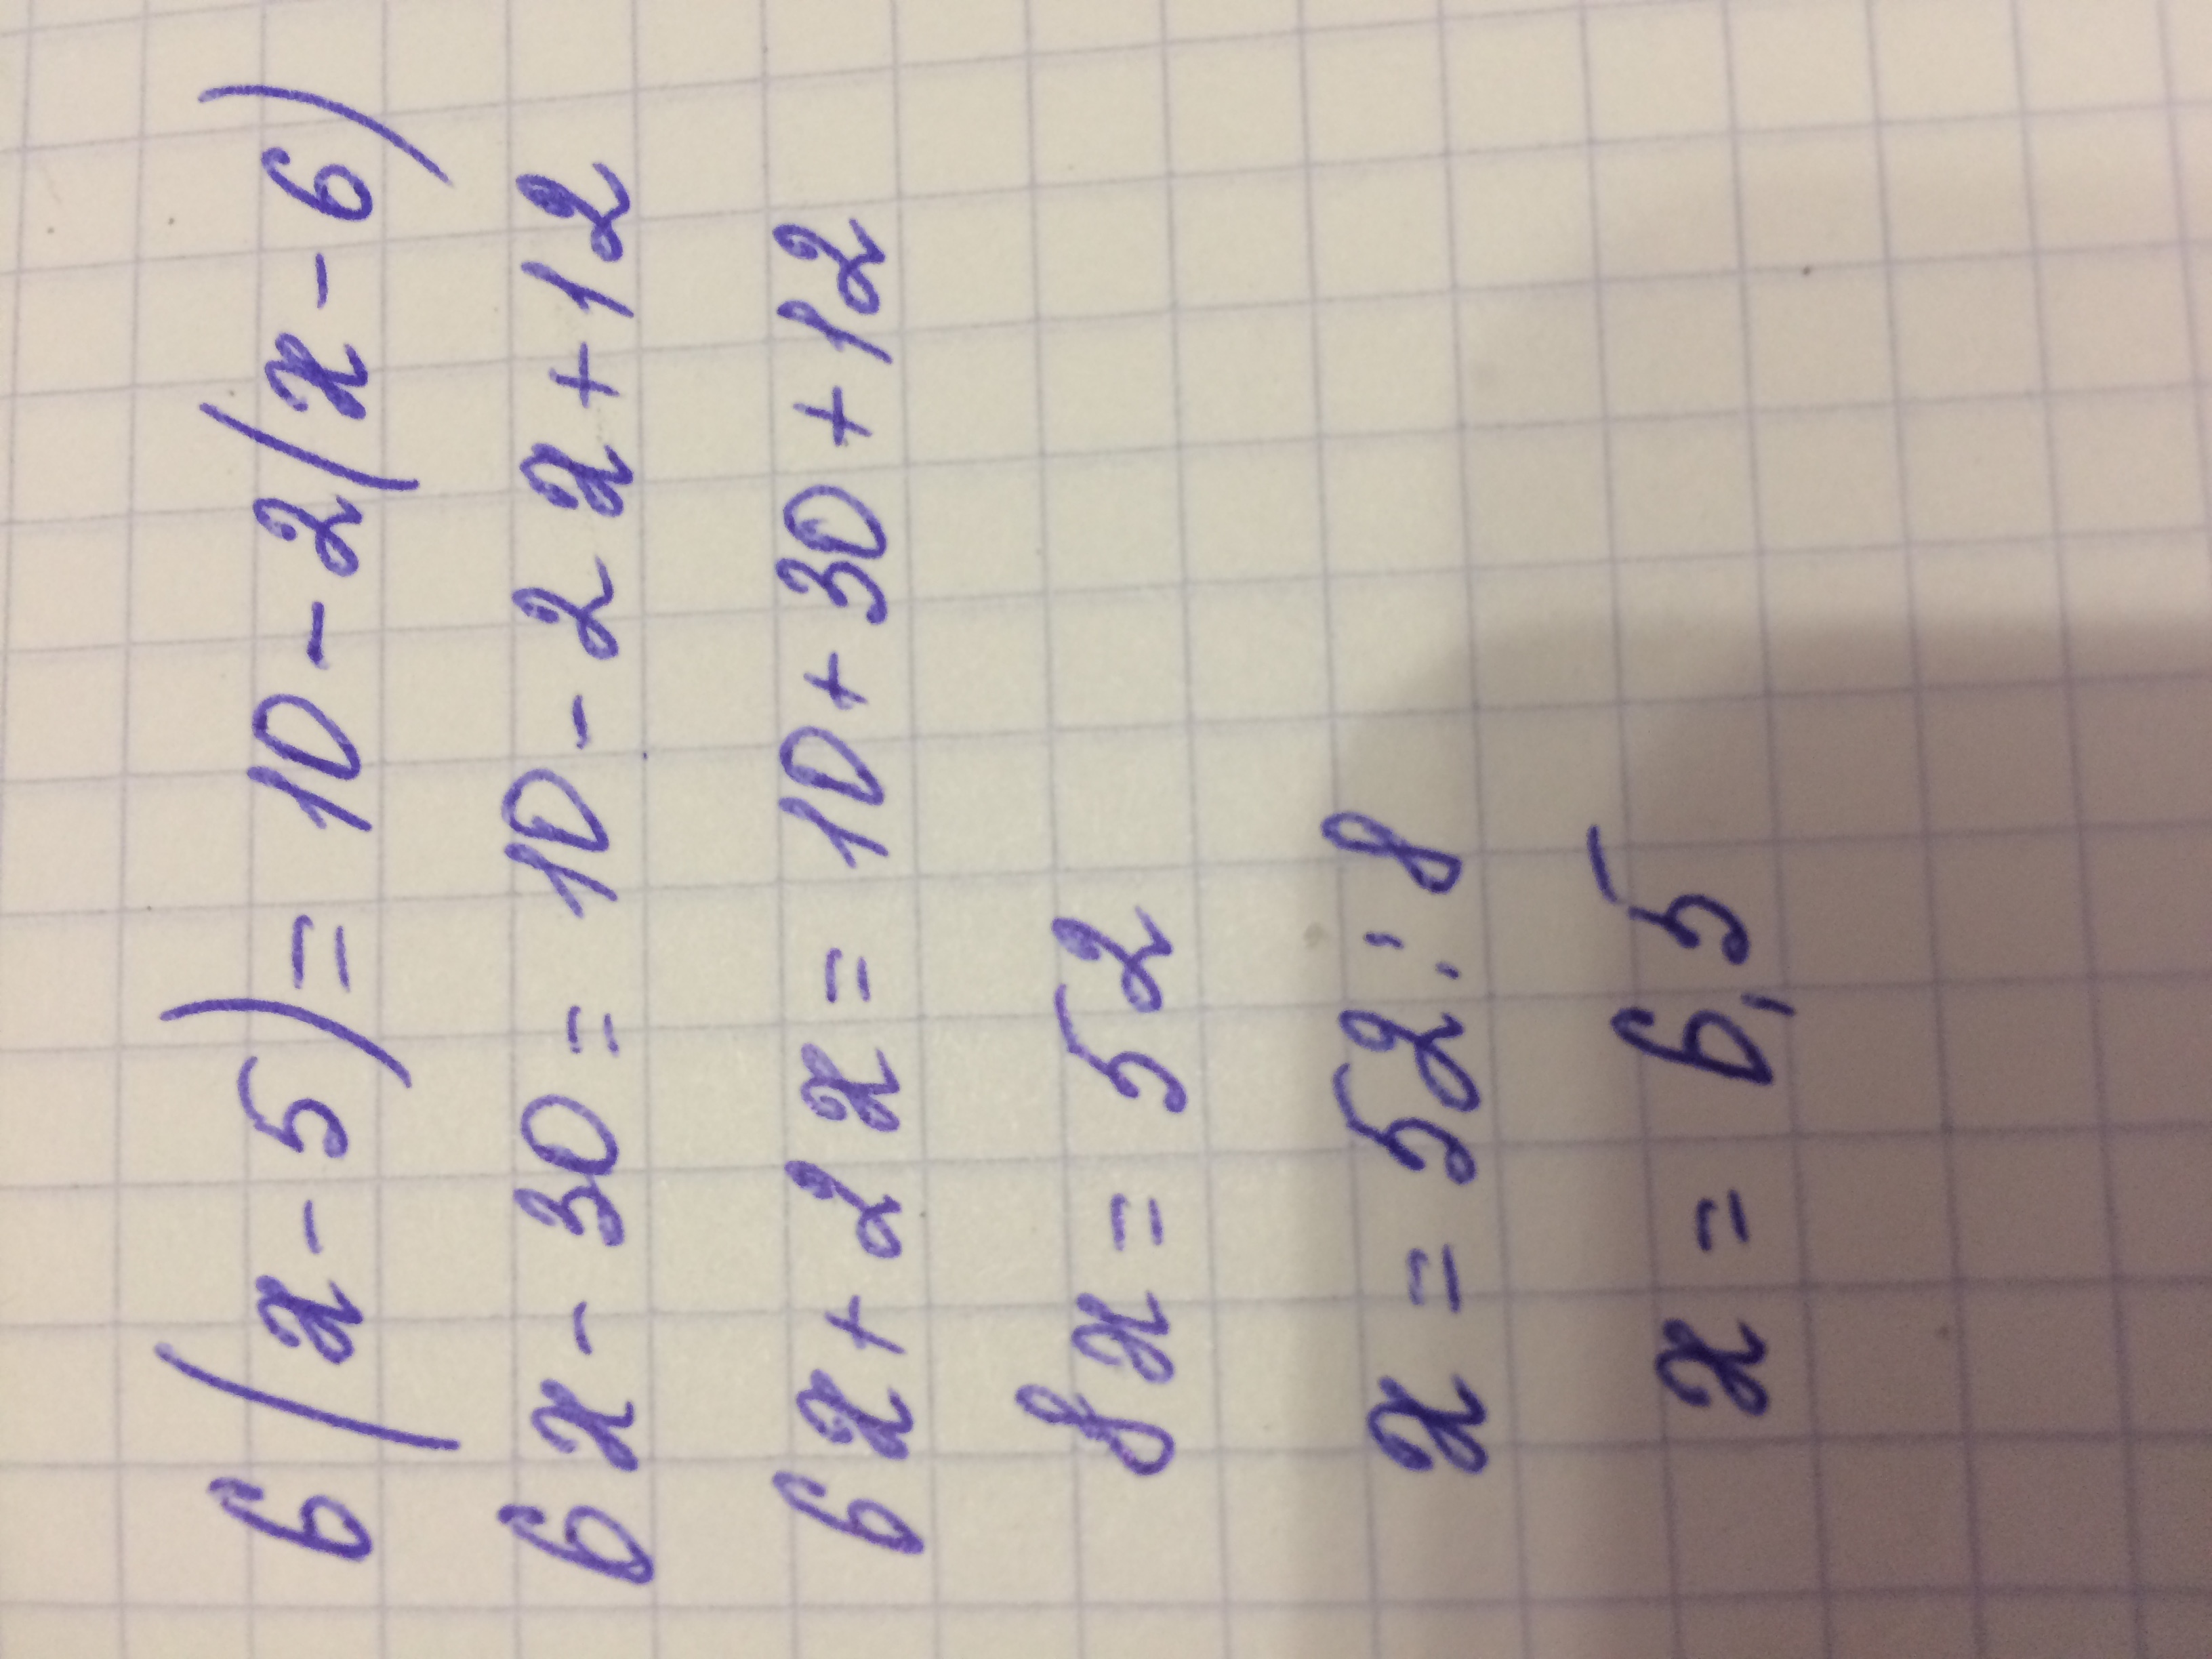 6(x-5)=10-2(x-6)
6x-30=10-2x+12
6x+2x=10+30+12
8x=52
x=52:8
x=6,5